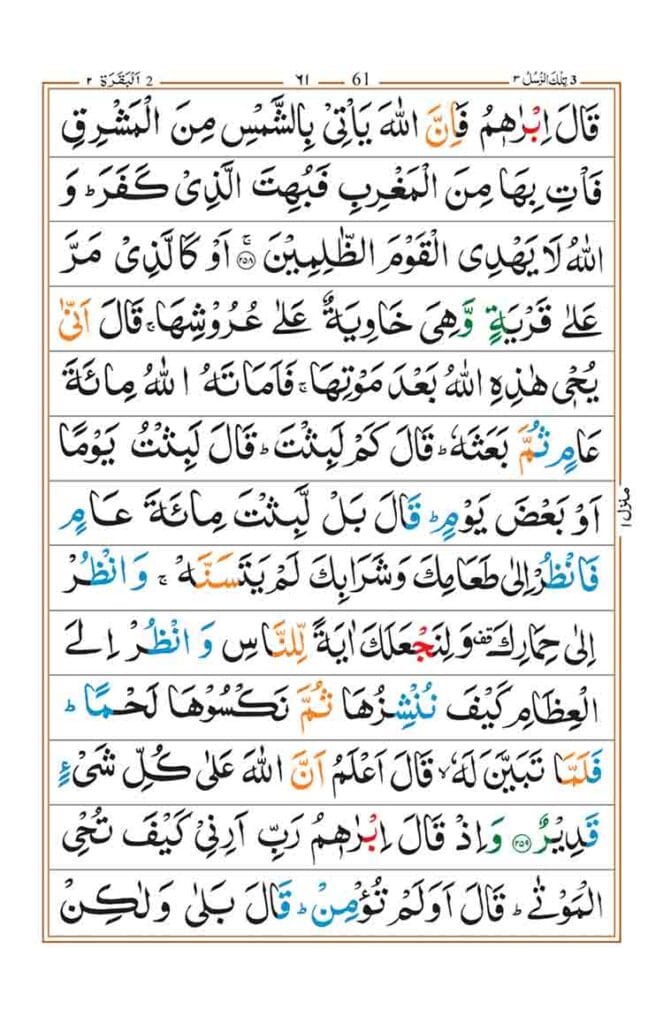 3 تِلْكَ الرُّسُلُ ٣ 61 ٦١ 2 اَلْبَقَرَة ٢
قَالَ اِبْرٰهٖمُ فَاِنَّ اللّٰهَ يَاْتِيْ بِالشَّمْسِ مِنَ الْمَشْرِقِ
فَاْتِ بِهَا مِنَ الْمَغْرِبِ فَبُهِتَ الَّذِيْ كَفَرَ ؕ وَ
اللّٰهُ لَا يَهْدِي الْقَوْمَ الظّٰلِمِيْنَ ۚ‏﴿۲۵۸﴾ اَوْ كَالَّذِيْ مَرَّ
عَلٰى قَرْيَةٍ وَّهِيَ خَاوِيَةٌ عَلٰى عُرُوْشِهَا ۚ قَالَ اَنّٰى
يُحْيٖ هٰذِهِ اللّٰهُ بَعْدَ مَوْتِهَا ۚ فَاَمَاتَهُ اللّٰهُ مِائَةَ
عَامٍ ثُمَّ بَعَثَهٗ ؕ قَالَ كَمْ لَبِثْتَ ؕ قَالَ لَبِثْتُ يَوْمًا
اَوْ بَعْضَ يَوْمٍ ؕ قَالَ بَلْ لَّبِثْتَ مِائَةَ عَامٍ
فَانْظُرْ اِلٰى طَعَامِكَ وَشَرَابِكَ لَمْ يَتَسَنَّهْ ۚ وَانْظُرْ
اِلٰى حِمَارِكَ قف وَلِنَجْعَلَكَ اٰيَةً لِّلنَّاسِ وَانْظُرْ اِلَى
الْعِظَامِ كَيْفَ نُنْشِزُهَا ثُمَّ نَكْسُوْهَا لَحْمًا ؕ
فَلَمَّا تَبَيَّنَ لَهٗ ۙ قَالَ اَعْلَمُ اَنَّ اللّٰهَ عَلٰى كُلِّ شَيْءٍ
قَدِيْرٌ ﴿۲۵۹﴾ وَاِذْ قَالَ اِبْرٰهٖمُ رَبِّ اَرِنِيْ كَيْفَ تُحْيِ
الْمَوْتٰى ؕ قَالَ اَوَلَمْ تُؤْمِنْ ؕ قَالَ بَلٰى وَلٰكِنْ
منزل ١